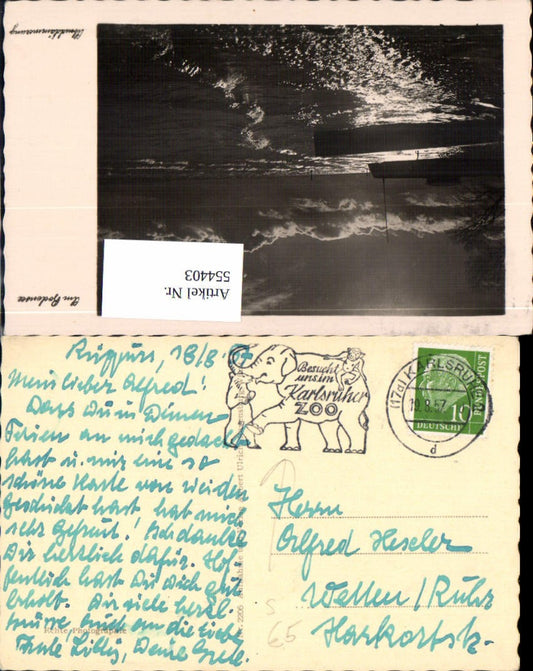 Abenddämmerung
Im Bodensee
Artikel Nr.
554403
Rüppurr, 18/8. 57
Mein lieber Alfred!
Dass Du in Deinen
Ferien an mich gedacht
hast u. mir eine so
schöne Karte von
geschickt hast, hat mich
sehr gefreut! Ich danke
Dir herzlich dafür. Hof-
fentlich hast Du Dich gut
erholt. Dir viele herzl.
Grüsse, auch an die liebe
Tante Lilly, Deine Grete.
Echte Photographie
Besucht
uns im
Karlsruher
ZOO
(17a) KARLSRUHE
19.8.57
d
10
DEUTSCHE
BUNDESPOST
Herrn
Alfred Heseler
Wetter/Ruhr
Harkortstr.
S
65